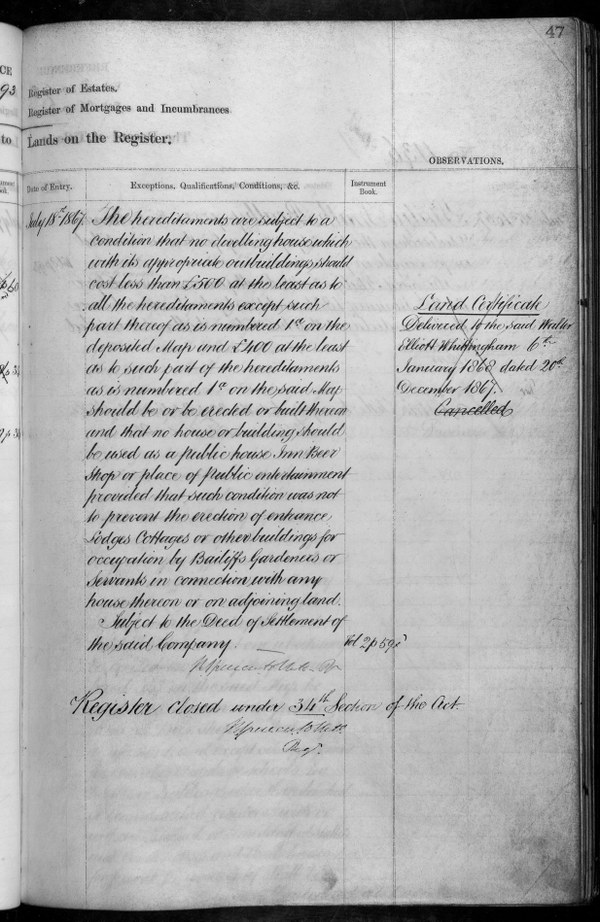 47
CE
93
to
Register of Estates.
Register of Mortgages and Incumbrances
Lands on the Register.
OBSERVATIONS.
Date of Entry.
Exceptions, Qualifications, Conditions, &c.
Instrument Book.
July 18th 1867.
The hereditaments are subject to a
condition that no dwelling house which
with its appropriate outbuildings should
cost less than £500 at the least as to
all the hereditaments except such
part thereof as is numbered 1a on the
deposited Map and £400 at the least
as to such part of the hereditaments
as is numbered 1a on the said Map
should be or be erected or built thereon
and that no house or building should
be used as a public house Inn Beer
Shop or place of Public entertainment
provided that such condition was not
to prevent the erection of entrance
Lodges Cottages or other buildings for
occupation by Bailiffs Gardeners or
Servants in connection with any
house thereon or on adjoining land.
Subject to the Deed of Settlement of
the said Company.
Vol 2 p 59
Land Certificate
Delivered to the said Walter
Elliott Whittingham 6th
January 1868 dated 20th
December 1867.
Cancelled
Register closed under 34th Section of the Act